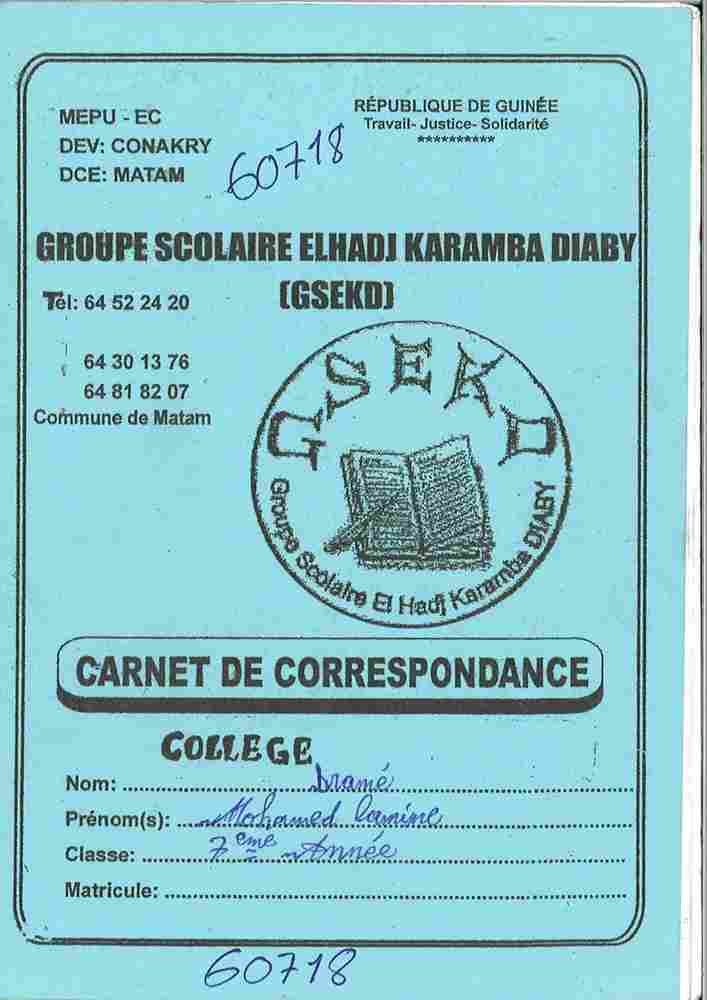 MEPU - EC
RÉPUBLIQUE DE GUINÉE
Travail- Justice- Solidarité
**********
DEV: CONAKRY
DCE: MATAM
60718
GROUPE SCOLAIRE ELHADJ KARAMBA DIABY
(GSEKD)
Tél: 64 52 24 20
64 30 13 76
64 81 82 07
Commune de Matam
GSEKD
Groupe Scolaire El Hadj Karamba DIABY
CARNET DE CORRESPONDANCE
COLLEGE
Nom: Dramé
Prénom(s): Mohamed Lamine
Classe: 7ème Année
Matricule:
60718